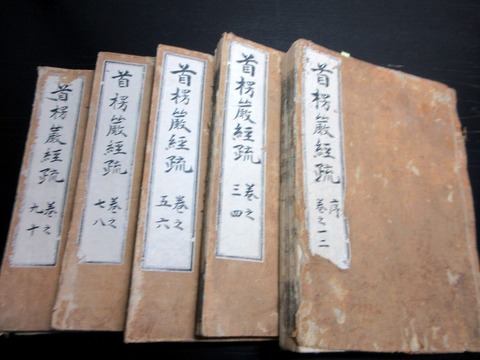 首楞嚴經疏 序 卷之一二
首楞嚴經疏 卷之三四
首楞嚴經疏 卷之五六
首楞嚴經疏 卷之七八
首楞嚴經疏 卷之九十